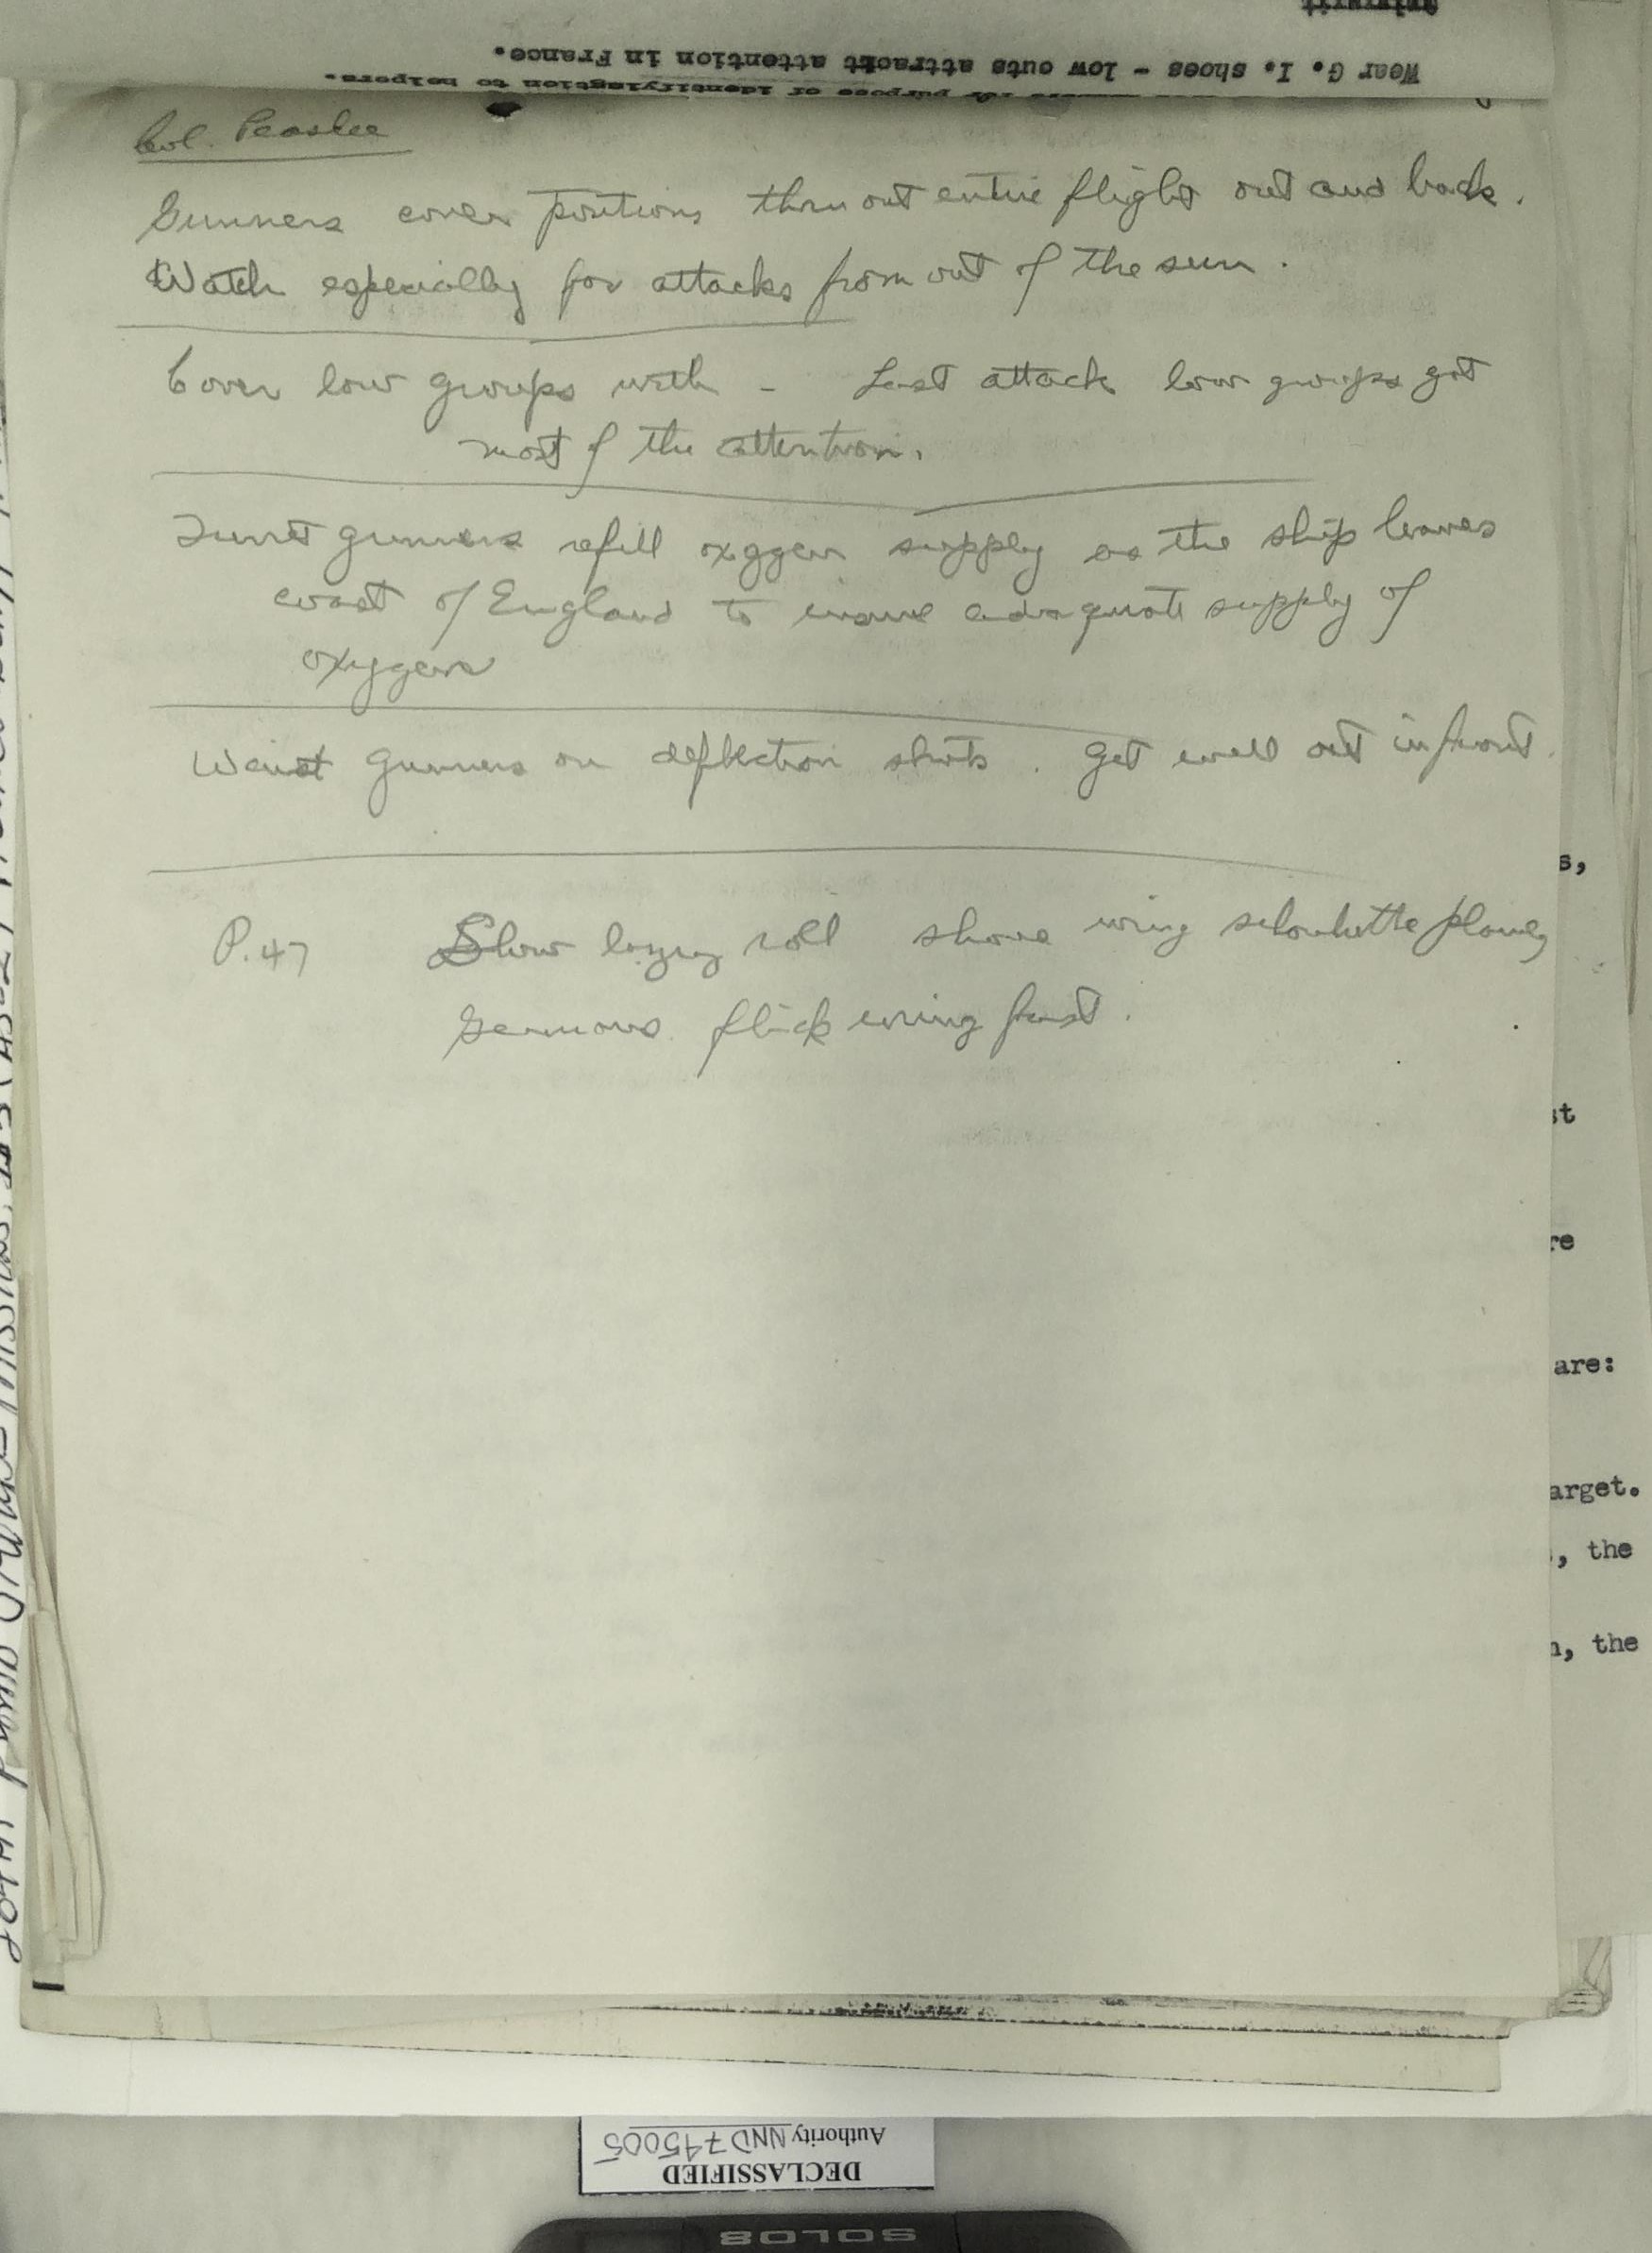 Wear G. I. shoes - low cuts attract attention in France.
purpose of identifying to helpers.
Col. Peaslee
Gunners cover positions thru out entire flight out and back.
Watch especially for attacks from out of the sun.
Cover low groups with - Last attack low groups got
most of the attention.
Turret gunners refill oxygen supply as the ship leaves
coast of England to insure adaquate supply of
oxygen
Waist gunners on deflection shots. Get well out in front.
s,
P.47 Slow lazy roll show wing silouhette plainly
Germans flick wing fast.
st
re
are:
arget.
, the
n, the
DECLASSIFIED
Authority NND 745005
SOLO8